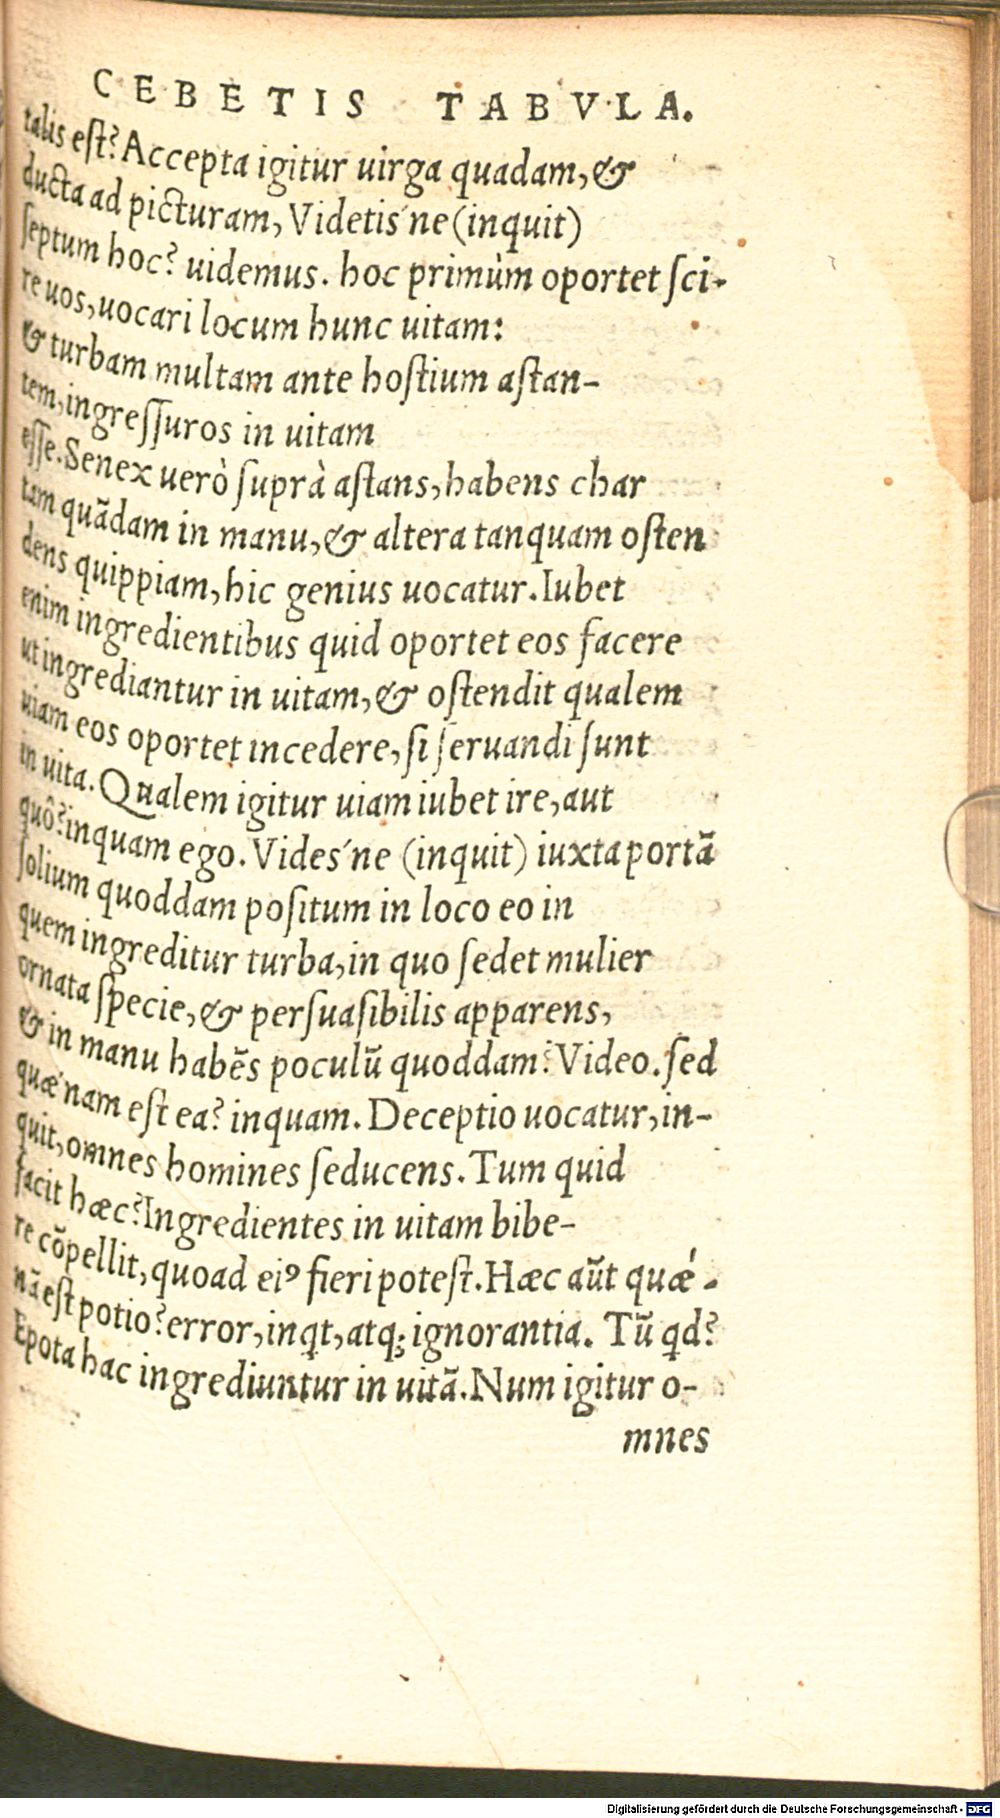 CEBETIS TABVLA.
talis est? Accepta igitur uirga quadam, &
ducta ad picturam, Videtis´ne (inquit)
septum hoc? uidemus. hoc primùm oportet sci-
re uos, uocari locum hunc uitam:
& turbam multam ante hostium astan-
tem, ingressuros in uitam
esse. Senex uerò suprà astans, habens char
tam quãdam in manu, & altera tanquam osten
dens quippiam, hic genius uocatur. Iubet
enim ingredientibus quid oportet eos facere
ut ingrediantur in uitam, & ostendit qualem
uiam eos oportet incedere, si seruandi sunt
in uita. Qualem igitur uiam iubet ire, aut
quô? inquam ego. Vides´ne (inquit) iuxta portã
solium quoddam positum in loco eo in
quem ingreditur turba, in quo sedet mulier
ornata specie, & persuasibilis apparens,
& in manu habẽs poculũ quoddam? Video. sed
quæ´nam est ea? inquam. Deceptio uocatur, in-
quit, omnes homines seducens. Tum quid
facit hæc? Ingredientes in uitam bibe-
re cõpellit, quoad eiꝰ fieri potest. Hæc aũt quæ´-
nã est potio? error, inqt, atq; ignorantia. Tũ qd?
Epota hac ingrediuntur in uitã. Num igitur o-
mnes
Digitalisierung gefördert durch die Deutsche Forschungsgemeinschaft - DFG